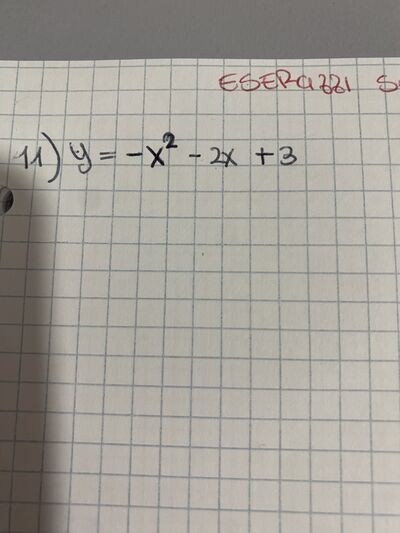 ESERCIZI
11) y = -x² - 2x + 3